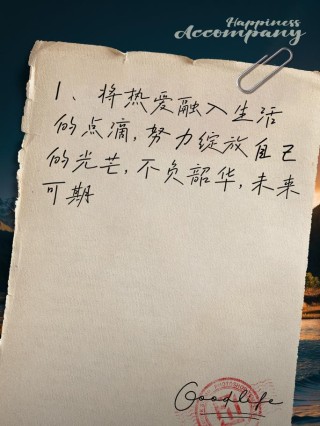 Happiness
Accompany
1、将热爱融入生活
的点滴,努力绽放自己
的光芒,不负韶华,未来
可期
Goodlife